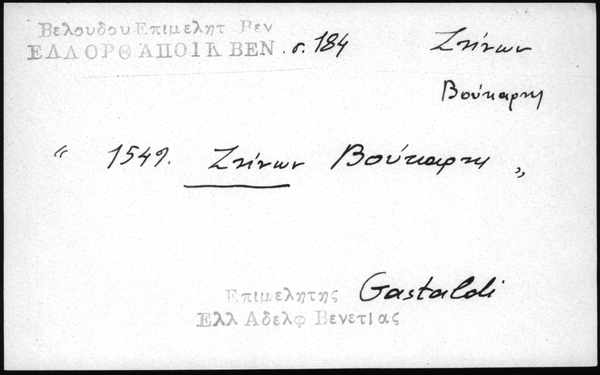 Βελουδου Επιμελητ Βεν
ΕΛΛ ΟΡΘ ΑΠΟΙΚ ΒΕΝ . σ. 184
Ζήνων
Βούκαρης
“ 1549. Ζήνων Βούκαρης „
Επιμελητης Gastaldi
Ελλ Αδελφ Βενετιας